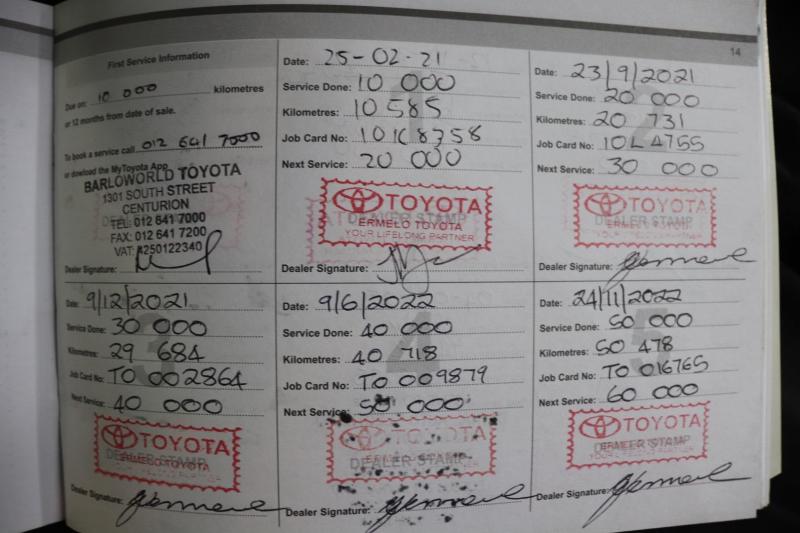 14
First Service Information
Due on: 10 000 kilometres
or 12 months from date of sale.
To book a service call 012 641 7000
or dowload the MyToyota App
BARLOWORLD TOYOTA
1301 SOUTH STREET
CENTURION
TEL: 012 641 7000
FAX: 012 641 7200
VAT: 4250122340
Dealer Signature:
Date: 25-02-21
Service Done: 10 000
Kilometres: 10 585
Job Card No: 101C8758
Next Service: 20 000
TOYOTA
DEALER STAMP
ERMELO TOYOTA
YOUR LIFELONG PARTNER
Dealer Signature:
Date: 23/9/2021
Service Done: 20 000
Kilometres: 20 731
Job Card No: 10L4755
Next Service: 30 000
TOYOTA
DEALER STAMP
Dealer Signature:
3
Date: 9/12/2021
Service Done: 30 000
Kilometres: 29 684
Job Card No: TO 002864
Next Service: 40 000
TOYOTA
DEALER STAMP
ERMELO TOYOTA
Dealer Signature:
4
Date: 9/6/2022
Service Done: 40 000
Kilometres: 40 718
Job Card No: TO 009879
Next Service: 50 000
TOYOTA
DEALER STAMP
Dealer Signature:
5
Date: 24/11/2022
Service Done: 50 000
Kilometres: 50 478
Job Card No: TO 016765
Next Service: 60 000
TOYOTA
DEALER STAMP
Dealer Signature: